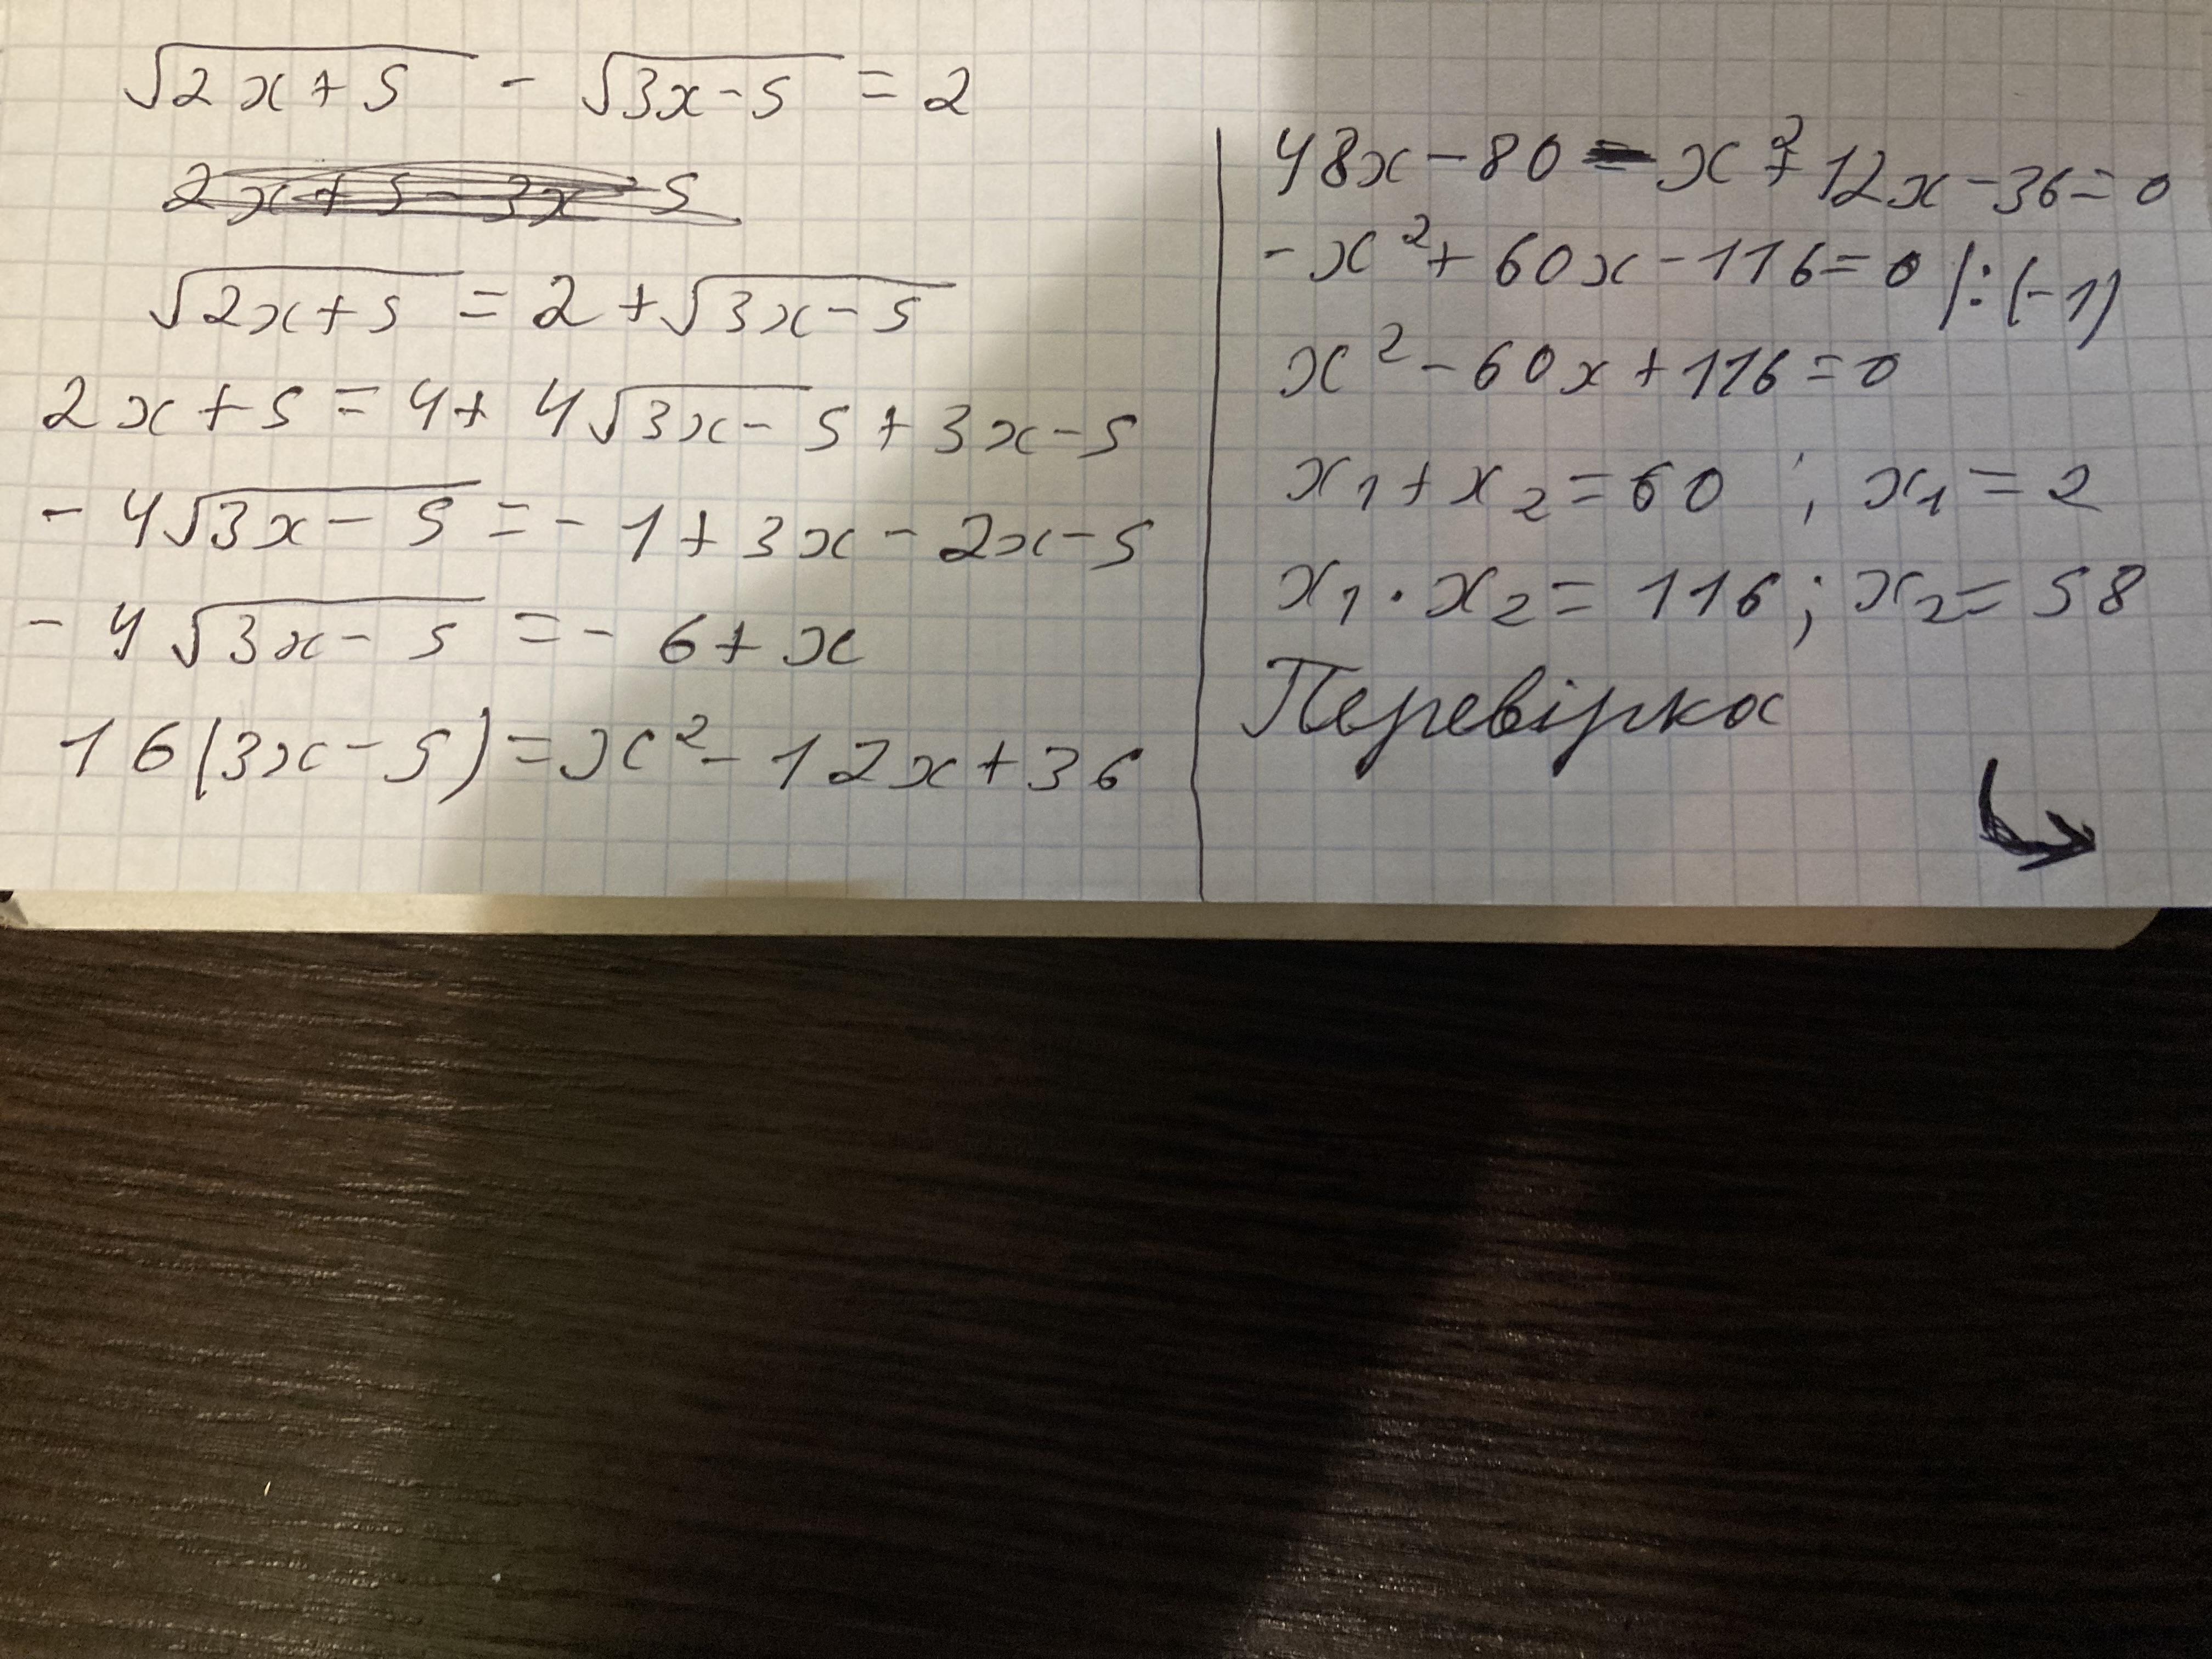 √2x+5 - √3x-5 = 2
2x+5-3x-5
√2x+5 = 2+√3x-5
2x+5=4+4√3x-5+3x-5
-4√3x-5=-1+3x-2x-5
-4√3x-5=-6+x
16(3x-5)=x²-12x+36
48x-80-x²+12x-36=0
-x²+60x-116=0 |:(-1)
x²-60x+116=0
x₁+x₂=60 ; x₁=2
x₁·x₂=116; x₂=58
Перевірка